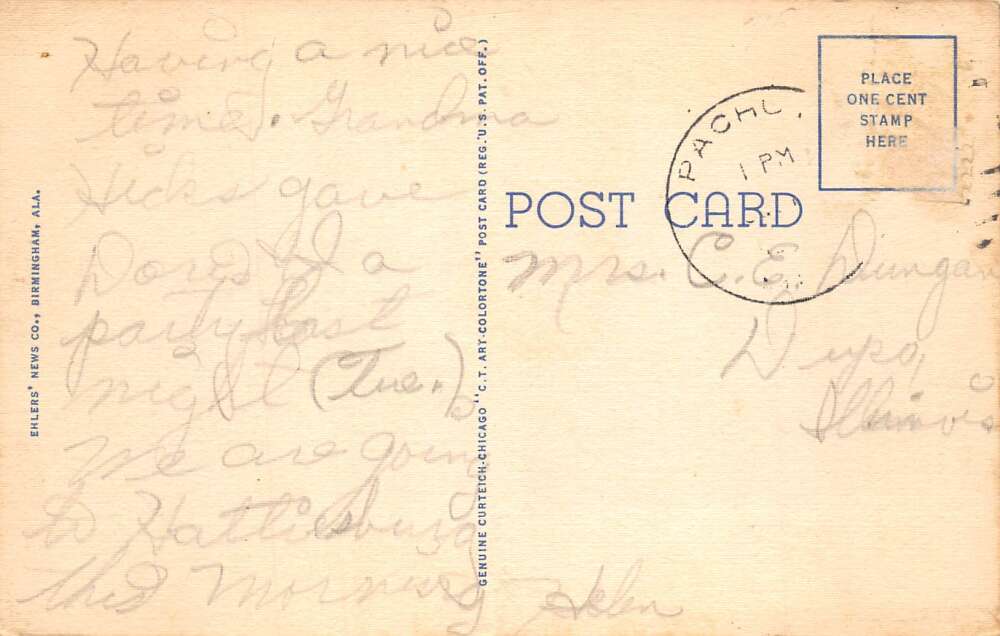 Having a nice
time. Grandma
Hicks gave
Doris & I a
party last
night (Tue.)
We are going
to Hattiesburg
this morning
Helen
EHLERS' NEWS CO., BIRMINGHAM, ALA.
GENUINE CURTEICH-CHICAGO "C.T. ART-COLORTONE" POST CARD (REG. U.S. PAT. OFF.)
POST CARD
PACHU
1 PM
PLACE
ONE CENT
STAMP
HERE
Mrs. C. E. Dungan
Dupo,
Illinois